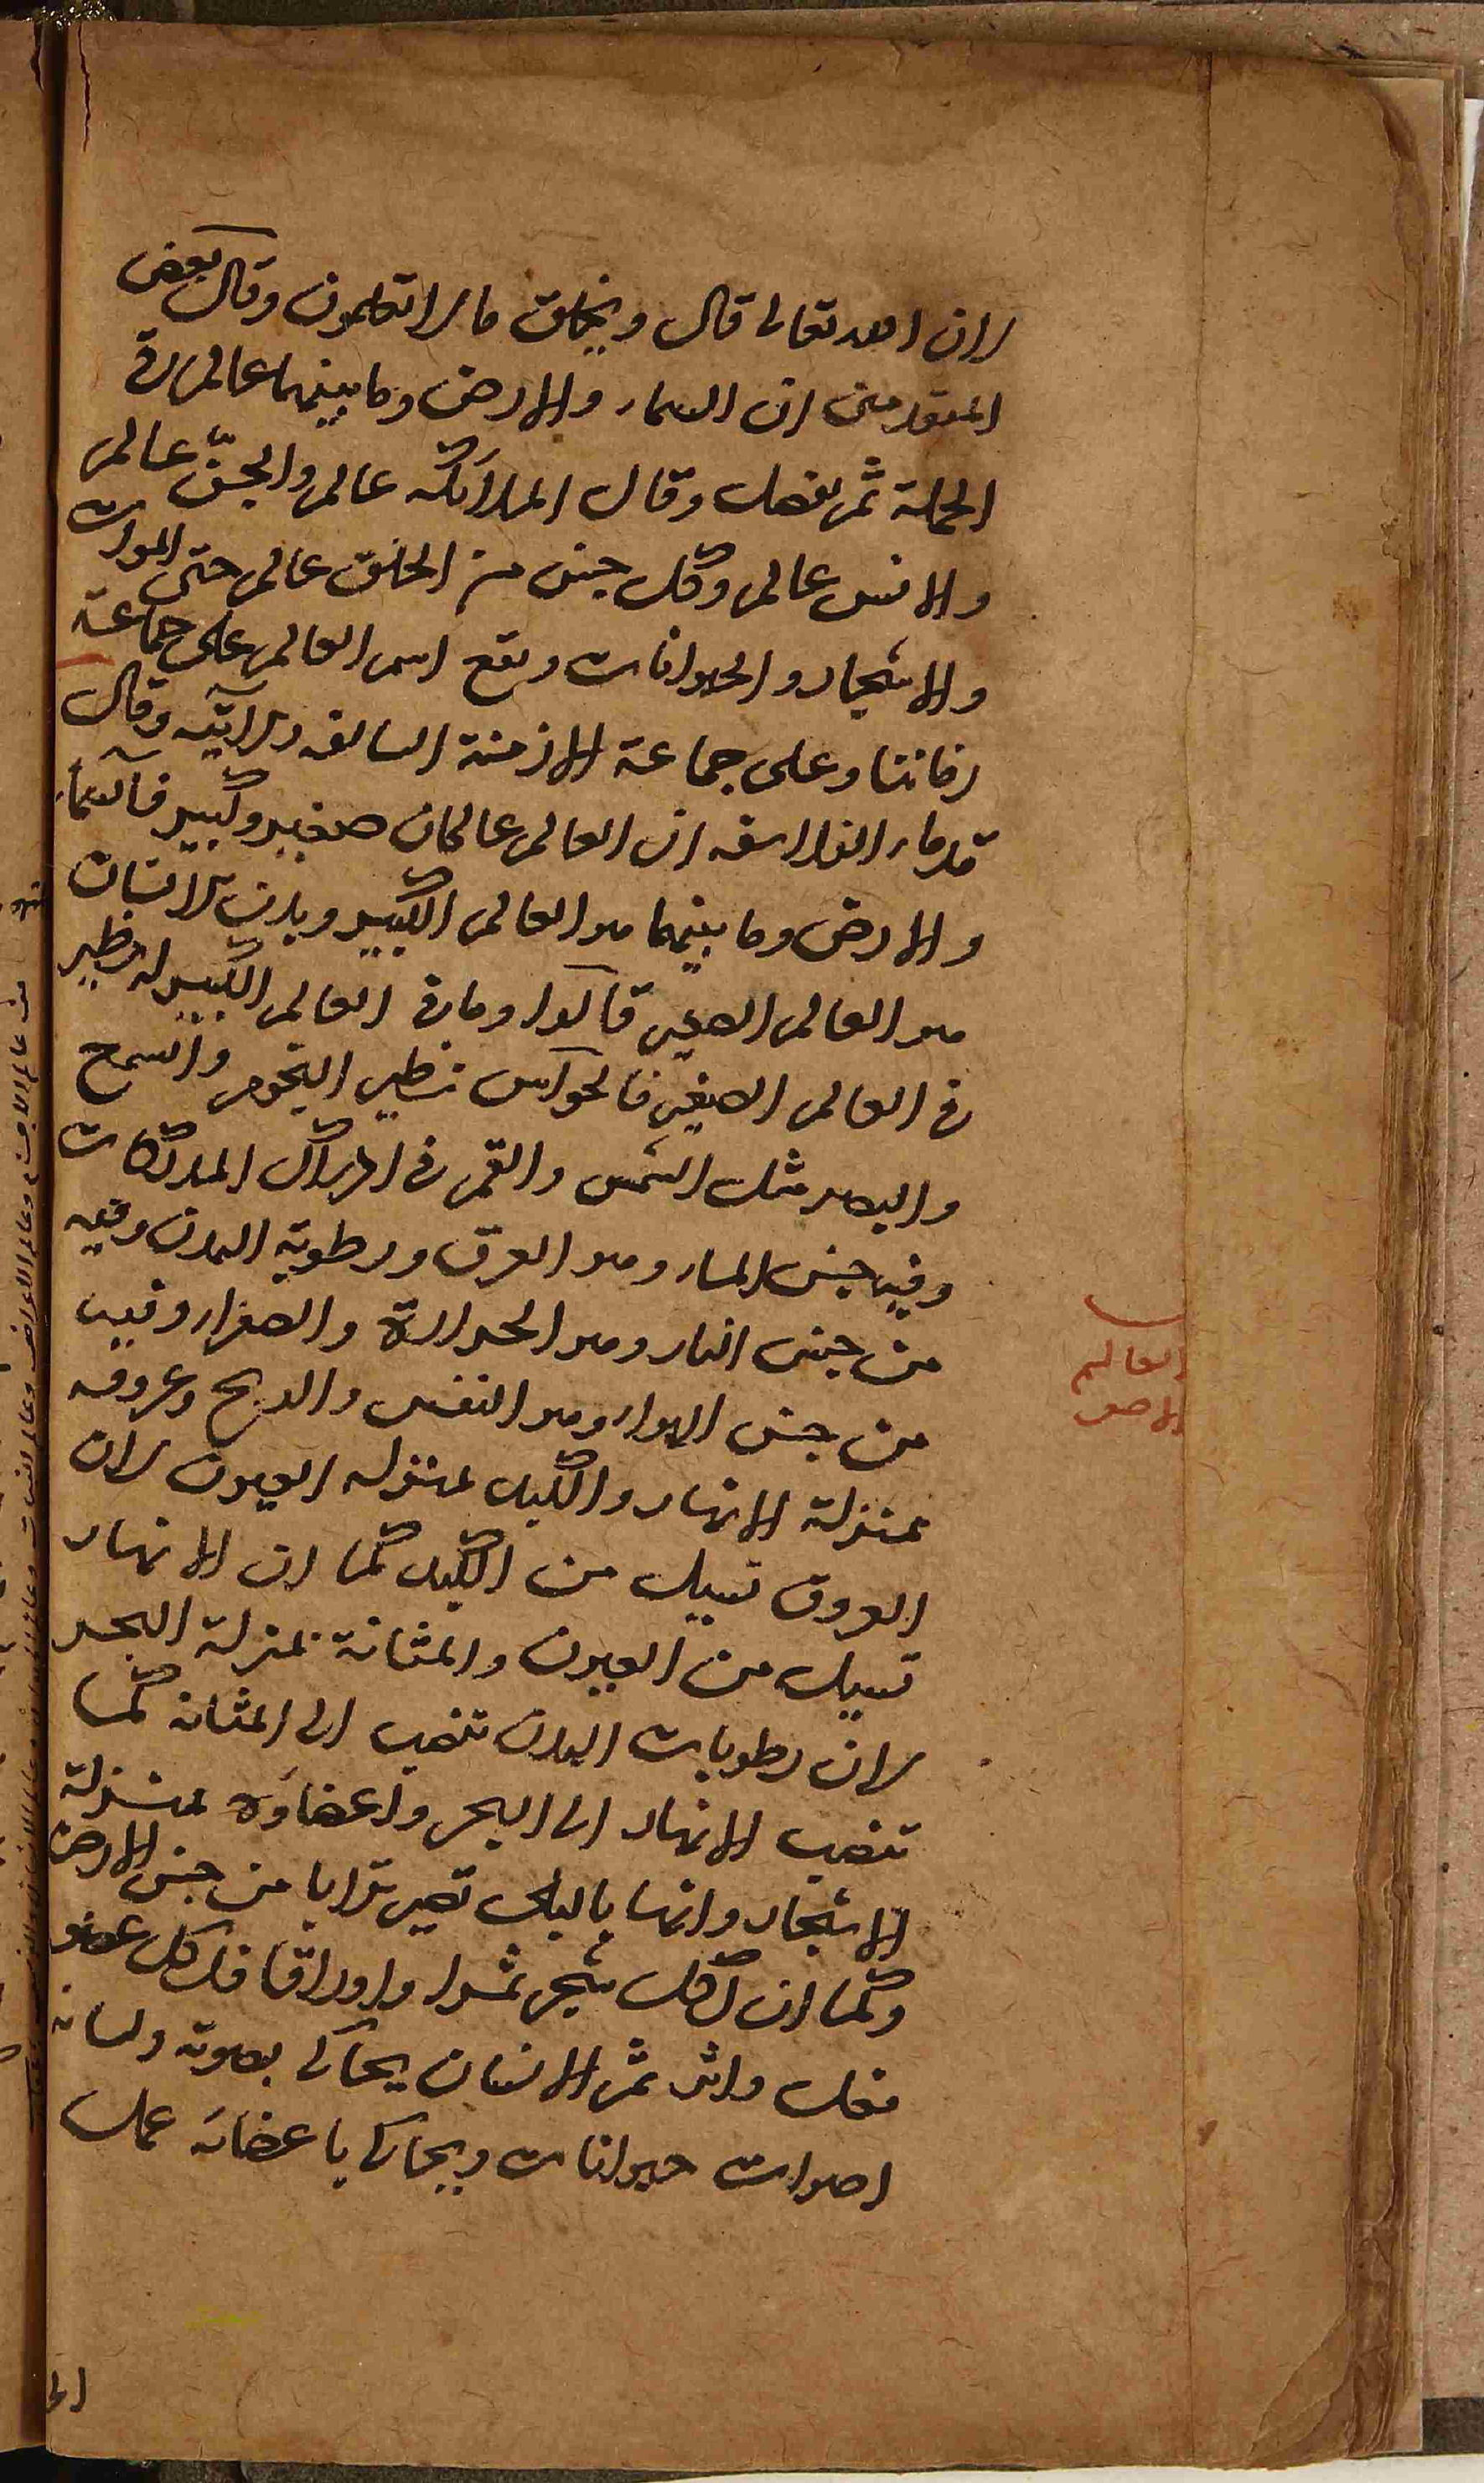 لان الله تعالى قال ويخلق ما لا تعلمون وقال بعض
المتقدمين ان السماء والارض وما بينهما عالم في
الجملة ثم يفصل وقال الملآئكه عالم والجنّ عالم
والانس عالم وكل جنس من الخلق عالم حتى الموات
والاشجار والحيوانات ويقع اسم العالم على جماعة
زماننا وعلى جماعة الازمنة السالفه والاتيه وقال
قدماء الفلاسفه ان العالم عالمان صغير وكبير فالسمآء
والارض وما بينهما هو العالم الكبير وبدن الانسان
هو العالم الصغير قالوا وما في العالم الكبير له نظير
في العالم الصغير فالحواس نظير النجوم والسمع
والبصر مثل الشمس والقمر في ادراك المدركات
وفيه جنس الماء وهو العرق ورطوبة البدن وفيه
من جنس النار وهو الحرارة والصفراء وفيه
من جنس الهواء وهو النفس والريح وعروقه
بمنزلة الانهار والكبد بمنزله العيون لان
العروق تسيل من الكبد كما ان الانهار
تسيل من العيون والمثانة بمنزلة البحر
لان رطوبات البدن تنصب الى المثانه كما
تنصب الانهار الى البحر واعضاؤه بمنزلة
الاشجار وانها بالبلى تصير ترابا من جنس الارض
وكما ان لكل شجر ثمرا واوراقا فلكل عضو
فعل واثر ثم الانسان يحاكي بصوته ولسانه
اصوات حيوانات ويحاكي باعضائه عمل
العالم